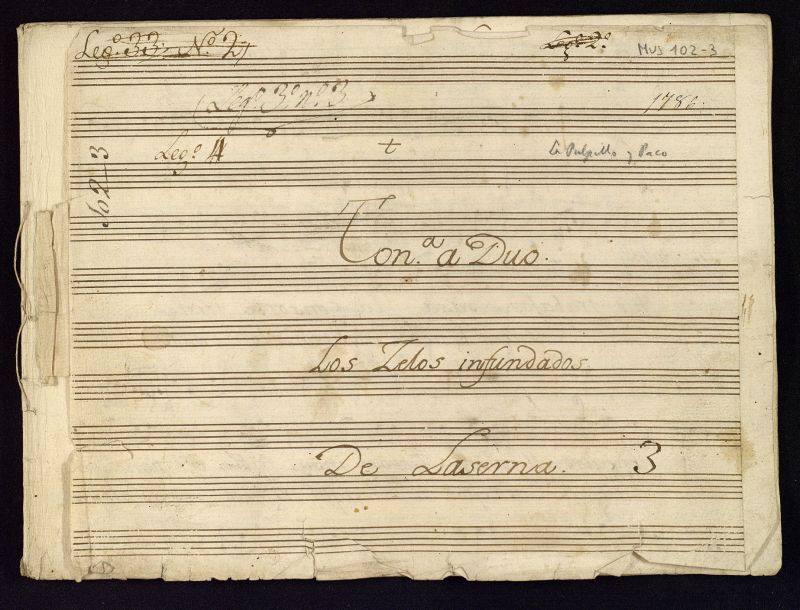 Leg.º 33 N.º 24
Leg.º 2º
MUS 102-3
Leg.º 3.º n.º 3
1786.
Leg.º 4
La Pulpillo y Paco
102-3
Ton.ª a Duo.
Los Zelos infundados.
De Laserna. 3